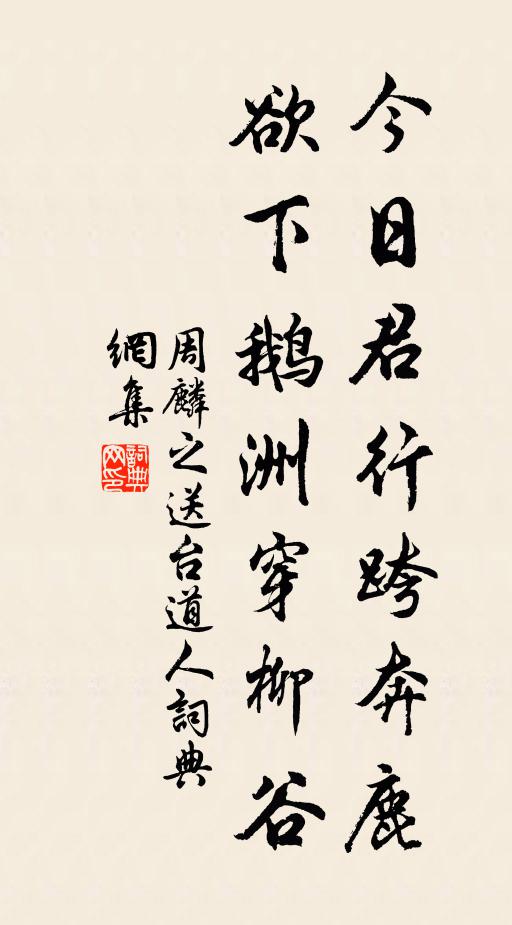 今日君行跨奔鹿
欲下鵝洲穿柳谷
周麟之送台道人詞典
網集
詞典
网印